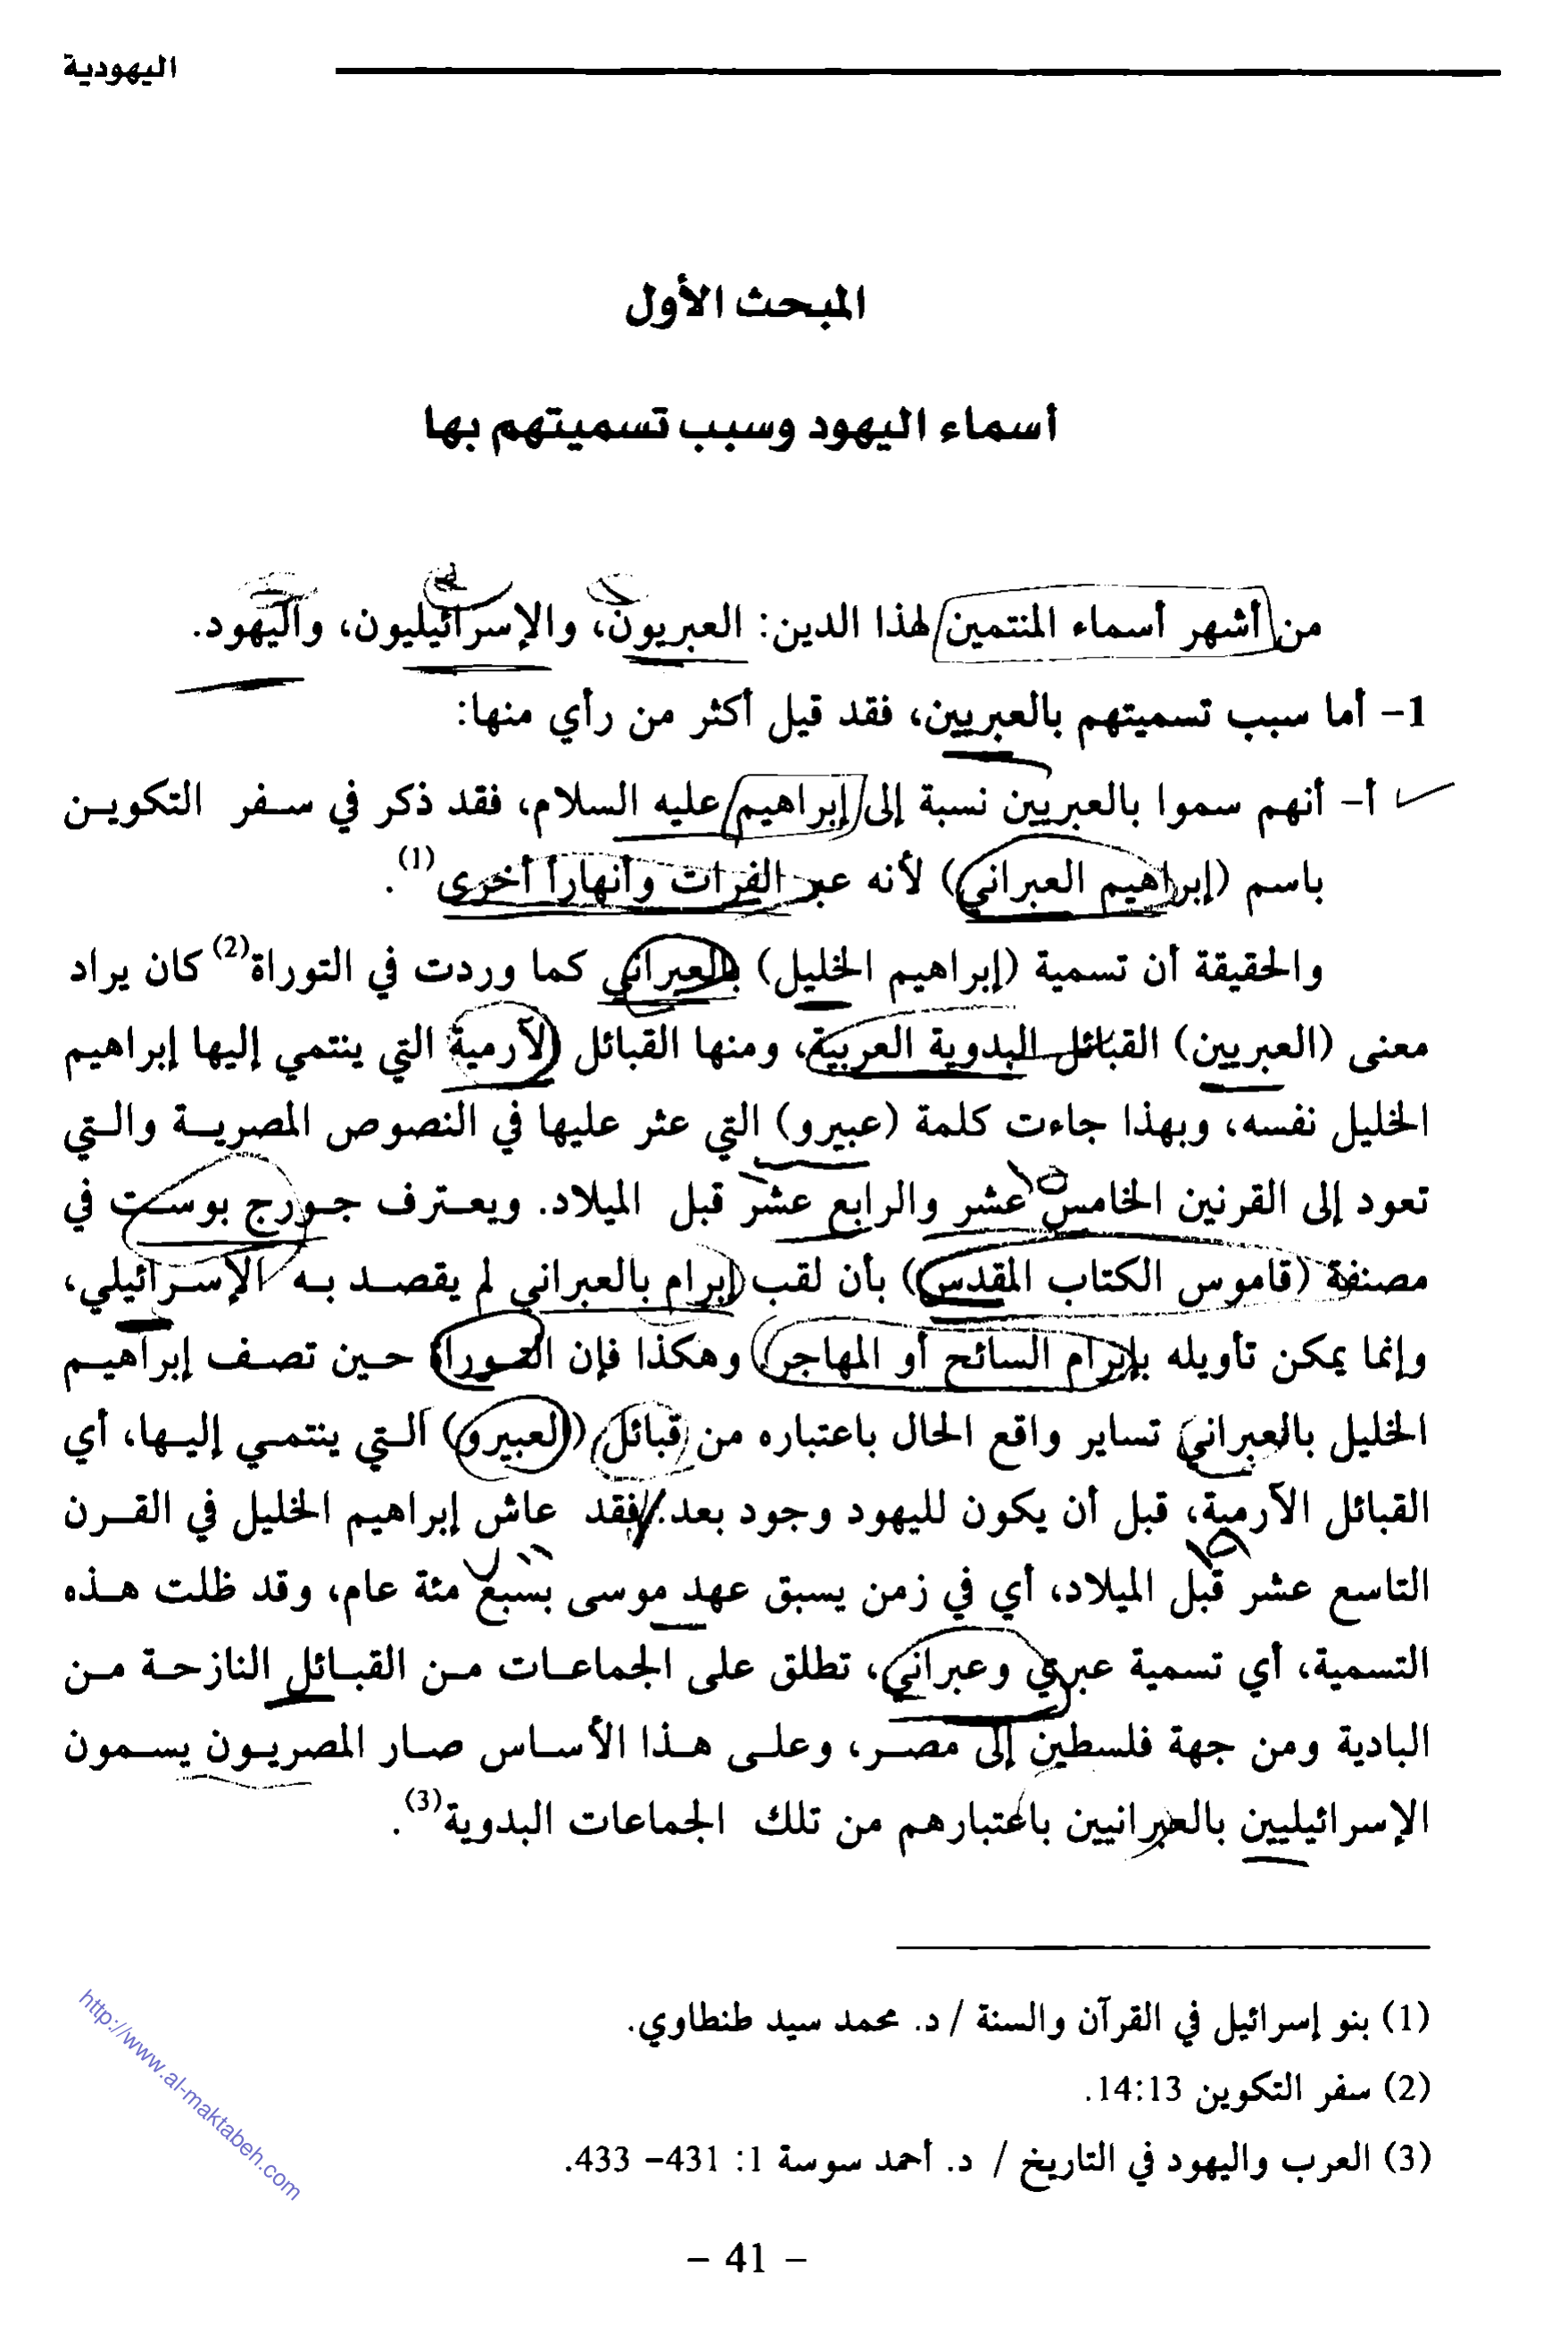 اليهودية
المبحث الأول
أسماء اليهود وسبب تسميتهم بها
من أشهر أسماء المنتمين لهذا الدين: العبريون، والإسرائيليون، واليهود.
1- أما سبب تسميتهم بالعبريين، فقد قيل أكثر من رأي منها:
أ- أنهم سموا بالعبريين نسبة إلى إبراهيم عليه السلام، فقد ذكر في سفر التكوين
باسم (إبراهيم العبراني) لأنه عبر الفرات وأنهاراً أخرى(1).
والحقيقة أن تسمية (إبراهيم الخليل) بالعبراني كما وردت في التوراة(2) كان يراد
معنى (العبريين) القبائل البدوية العربية، ومنها القبائل الآرمية التي ينتمي إليها إبراهيم
الخليل نفسه، وبهذا جاءت كلمة (عبيرو) التي عثر عليها في النصوص المصرية والتي
تعود إلى القرنين الخامس عشر والرابع عشر قبل الميلاد. ويعترف جورج بوست في
مصنفة (قاموس الكتاب المقدس) بأن لقب إبرام بالعبراني لم يقصد به الإسرائيلي،
وإنما يمكن تأويله بإبرام السائح أو المهاجر، وهكذا فإن التوراة حين تصف إبراهيم
الخليل بالعبراني تساير واقع الحال باعتباره من قبائل (العبيرو) التي ينتمي إليها، أي
القبائل الآرمية، قبل أن يكون لليهود وجود بعد. فقد عاش إبراهيم الخليل في القرن
التاسع عشر قبل الميلاد، أي في زمن يسبق عهد موسى بسبع مئة عام، وقد ظلت هذه
التسمية، أي تسمية عبري وعبراني، تطلق على الجماعات من القبائل النازحة من
البادية ومن جهة فلسطين إلى مصر، وعلى هذا الأساس صار المصريون يسمون
الإسرائيليين بالعبرانيين باعتبارهم من تلك الجماعات البدوية(3).
(1) بنو إسرائيل في القرآن والسنة / د. محمد سيد طنطاوي.
(2) سفر التكوين 14:13.
(3) العرب واليهود في التاريخ / د. أحمد سوسة 1: 431- 433.
http://www.al-maktabeh.com
- 41 -